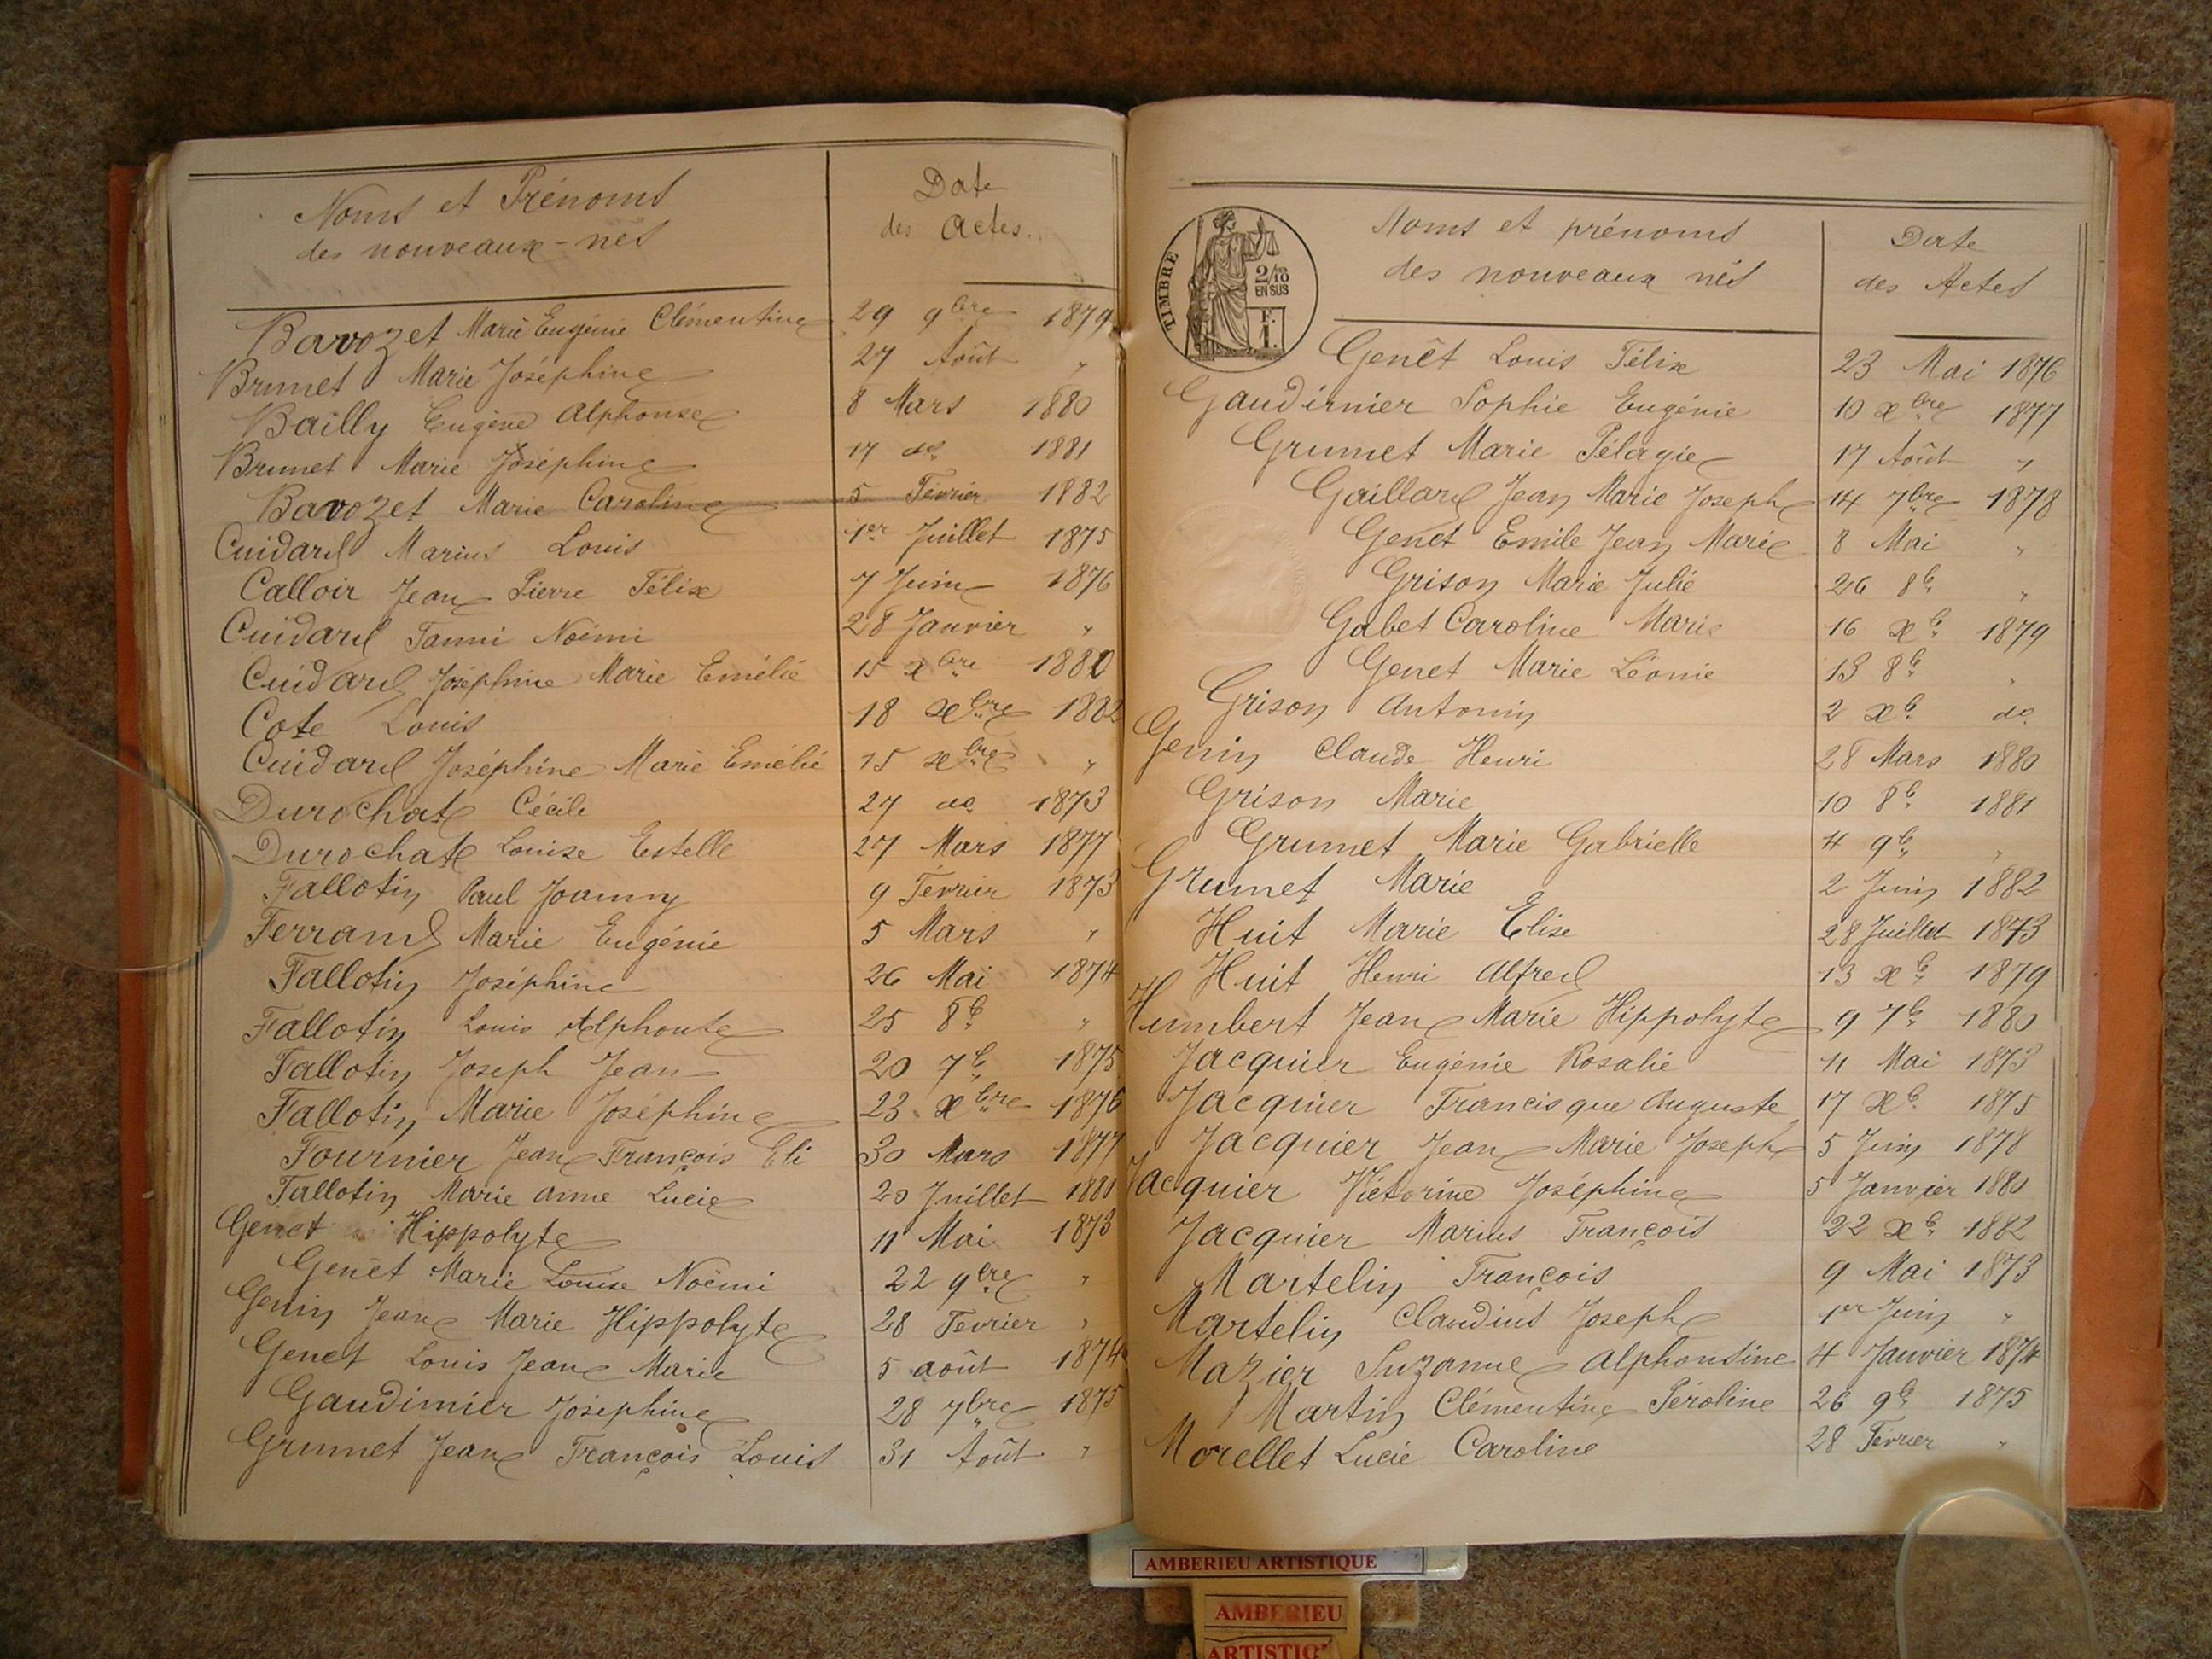 Noms et Prénoms
des nouveaux-nés
Date
des Actes.
Bavozet Marie Eugénie Clémentine 29 9bre 1879
Brunet Marie Joséphine 27 Août "
Bailly Eugène Alphonse 8 Mars 1880
Brunet Marie Joséphine 17 do 1881
Bavozet Marie Caroline 5 Février 1882
Cuidard Marius Louis 1er Juillet 1875
Calloir Jean Pierre Félix 7 Juin 1876
Cuidard Fanni Noémi 28 Janvier "
Cuidard Joséphine Marie Emélie 15 xbre 1882
Cote Louis 18 xbre 1882
Cuidard Joséphine Marie Emélie 15 xbre "
Durochat Cécile 27 do 1873
Durochat Louise Estelle 27 Mars 1877
Fallotin Paul Joanny 9 Fevrier 1873
Ferrand Marie Eugénie 5 Mars "
Fallotin Joséphine 26 Mai 1874
Fallotin Louis Alphonse 25 8b "
Fallotin Joseph Jean 20 7b 1875
Fallotin Marie Joséphine 23 xbre 1876
Fournier Jean François Eli 30 Mars 1877
Fallotin Marie Anne Lucie 20 Juillet 1881
Genet Hippolyte 11 Mai 1873
Genet Marie Louise Noëmi 22 9bre "
Genin Jean Marie Hippolyte 28 Fevrier "
Genet Louis Jean Marie 5 août 1874
Gaudimier Joséphine 28 7bre 1875
Grumet Jean François Louis 31 Août "
TIMBRE
2/10
EN SUS
F.
1.
Noms et prénoms
des nouveaux nés
Date
des Actes
Genêt Louis Félix 23 Mai 1876
Gaudimier Sophie Eugénie 10 xbre 1877
Grumet Marie Pélagie 17 Août "
Gaillard Jean Marie Joseph 14 7bre 1878
Genet Emile Jean Marie 8 Mai "
Grison Marie Julie 26 8b "
Gabet Caroline Marie 16 xb 1879
Genet Marie Léonie 13 8b "
Grison Antonin 2 xb do
Genin Claude Henri 28 Mars 1880
Grison Marie 10 8b 1881
Grumet Marie Gabrielle 4 9b "
Grumet Marie 2 Juin 1882
Huit Marie Elise 28 Juillet 1873
Huit Henri Alfred 13 xb 1879
Humbert Jean Marie Hippolyte 9 7b 1880
Jacquier Eugénie Rosalie 11 Mai 1873
Jacquier Francisque Auguste 17 xb 1875
Jacquier Jean Marie Joseph 5 Juin 1878
Jacquier Victorine Joséphine 5 Janvier 1880
Jacquier Marius François 22 xb 1882
Martelin François 9 Mai 1873
Martelin Claudius Joseph 1er Juin "
Mazier Suzanne Alphonsine 4 Janvier 1874
Martin Clémentine Péroline 26 9b 1875
Morellet Lucie Caroline 28 Février "
AMBERIEU ARTISTIQUE
AMBERIEU
ARTISTIQ